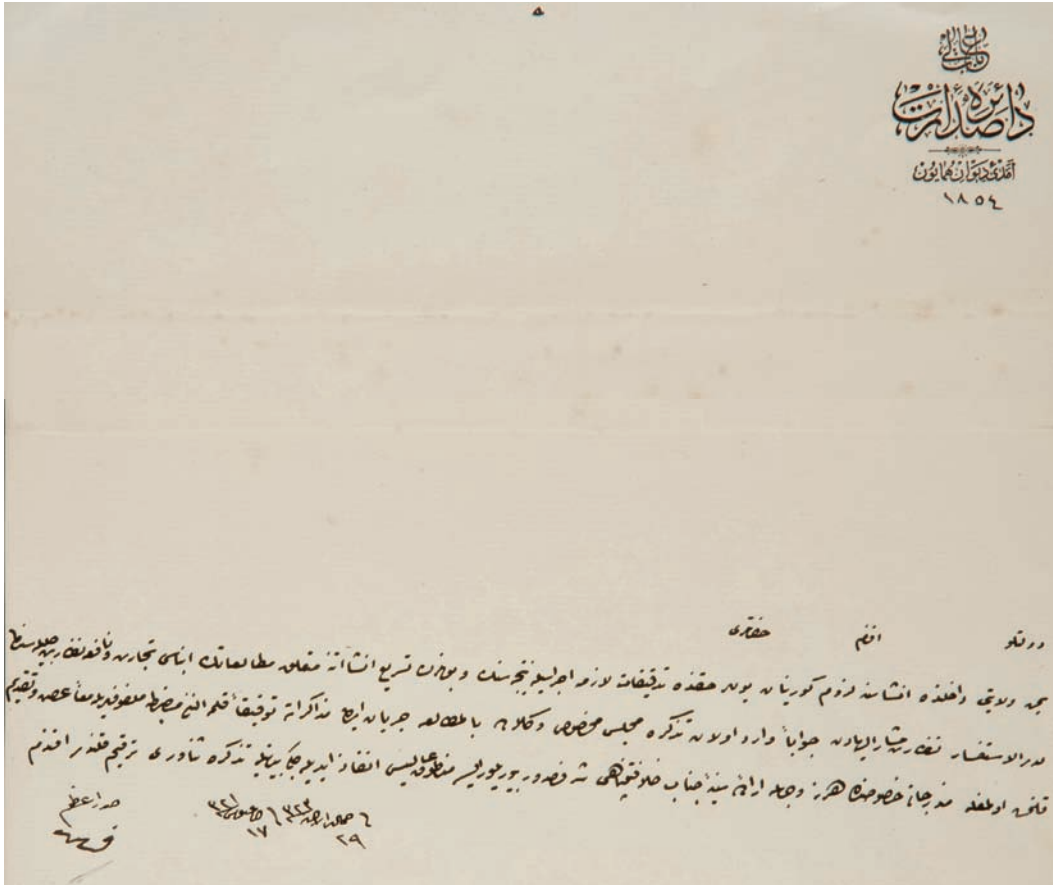 باب عالی
دائرۀ صدارت
آمدی دیوان همایون
١٨٥٤
دولتلو افندم حضرتلری
یمن ولایتی داخلنده انشاسنه لزوم کورینان یول حقنده تدقیقات لازمه اجراسیله نتیجه سنده و بو خط تسریع انشاآتنه متعلق مطالعاتك انباسی تجارت و نافعه نظارت جلیله سندن
لدی الاستفسار نظارت مشار الیهادن جواباً وارد اولان تذکره مجلس مخصوص وکلاده بالمطالعه جریان ایدن مذاکراته توفیقاً قلمه النان مضبطه ملفوفیله معاً عرض و تقدیم
قلنمش اولمغله مندرجاتی خصوصنده هر نه وجهله اراده سنیۀ جناب خلافتپناهی شرفصدور بیوریلور ایسه منطوق عالیسی انفاذ ایدیله جکی بیانیله تذکرۀ ثناوری ترقیم قلندی افندم
فی ٢٩ جمادی الاخر ٣٢٣ / فی ١٧ اغستوس ٣٢١
صدر اعظم